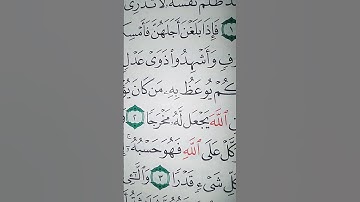 ظَلَمَ نَفْسَهُۥ لَا تَدْرِى
١ فَإِذَا بَلَغْنَ أَجَلَهُنَّ فَأَمْسِكُ
فٍ وَأَشْهِدُوا۟ ذَوَىْ عَدْلٍ
كُمْ يُوعَظُ بِهِۦ مَن كَانَ يُؤْ
ٱللَّهَ يَجْعَل لَّهُۥ مَخْرَجًا ٢
كَّلْ عَلَى ٱللَّهِ فَهُوَ حَسْبُهُۥٓ
لِّ شَىْءٍ قَدْرًا ٣ وَٱلَّٰٓـِٔى